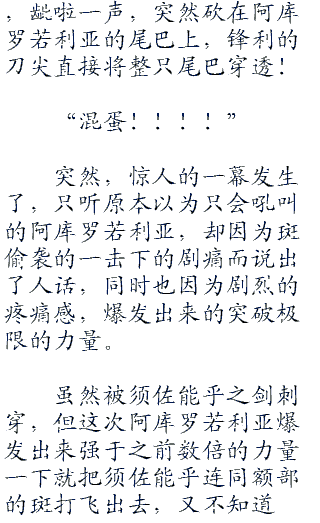 ，龇啦一声，突然砍在阿库
罗若利亚的尾巴上，锋利的
刀尖直接将整只尾巴穿透！
“混蛋！！！！”
突然，惊人的一幕发生
了，只听原本以为只会吼叫
的阿库罗若利亚，却因为斑
偷袭的一击下的剧痛而说出
了人话，同时也因为剧烈的
疼痛感，爆发出来的突破极
限的力量。
虽然被须佐能乎之剑刺
穿，但这次阿库罗若利亚爆
发出来强于之前数倍的力量
一下就把须佐能乎连同额部
的斑打飞出去，又不知道